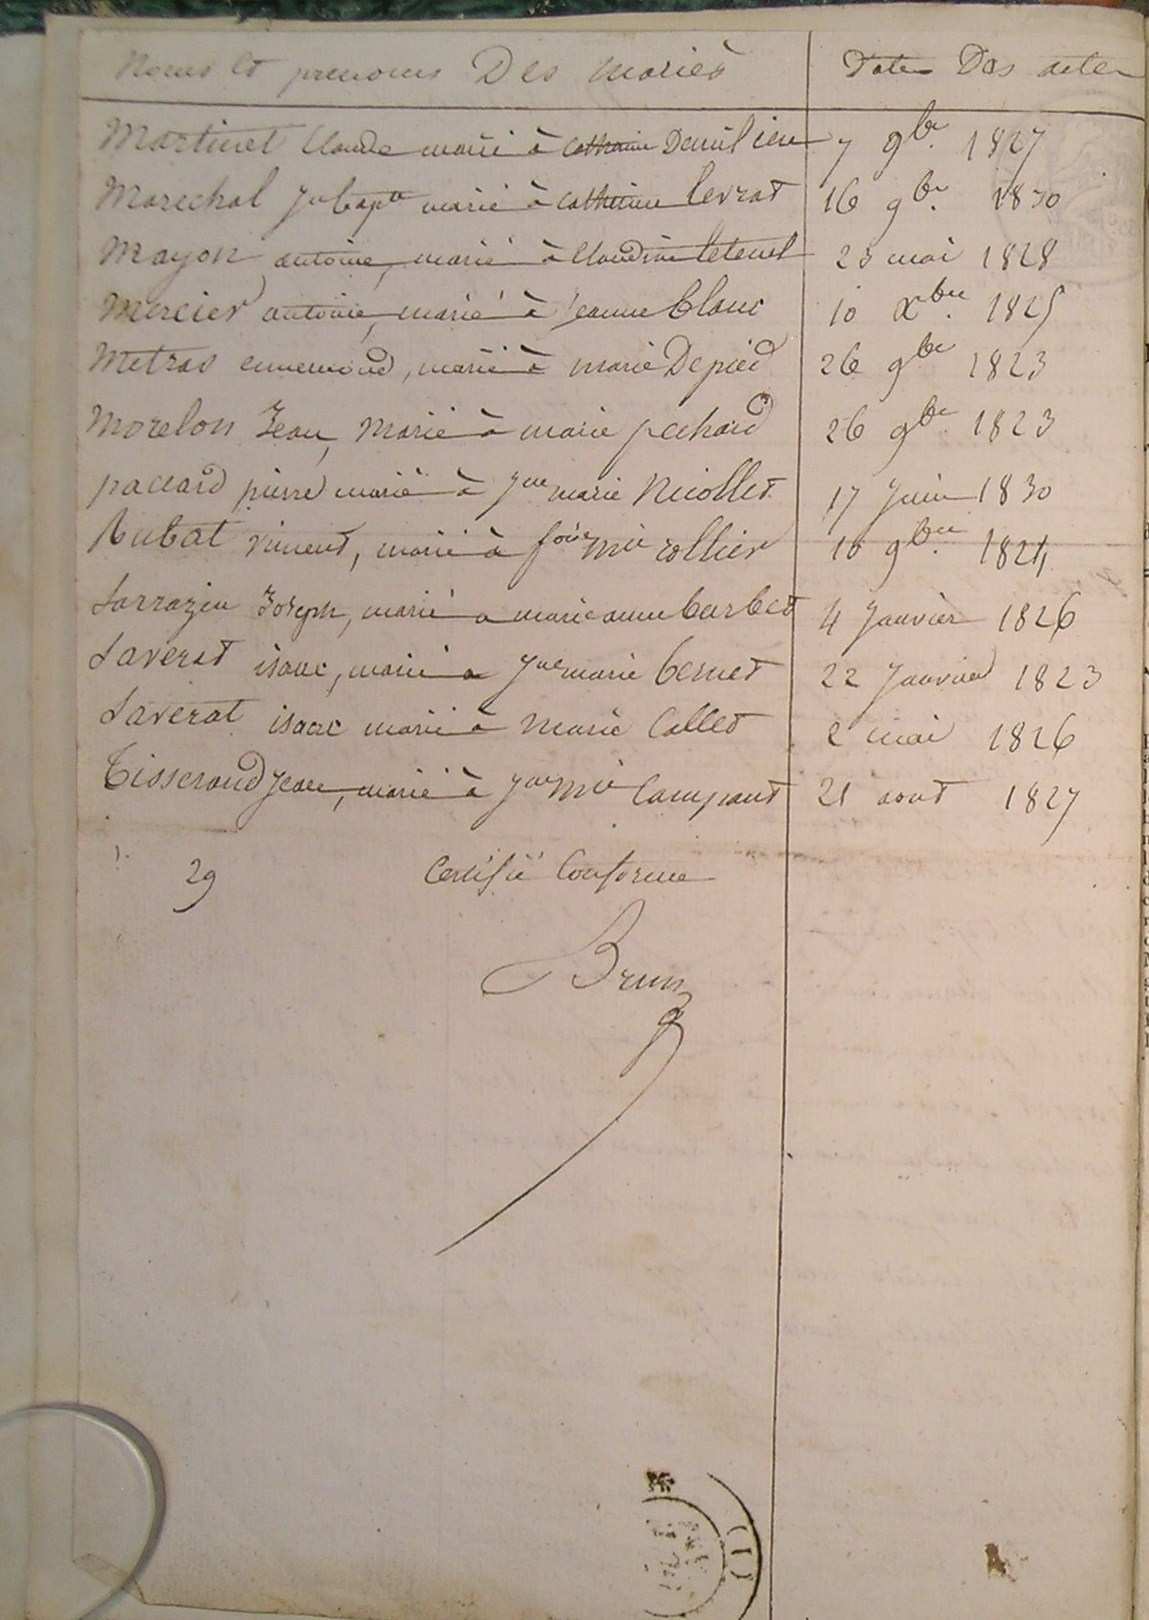 Noms et prenoms Des mariés Dates Des actes
Martinet Claude marié à Catherine Demilieu 7 9bre 1827
Marechal Jn bapte marié à Catherine Levrat 16 9bre 1830
Mayon antoine, marié à Claudine 23 mai 1828
Mercier antoine, marié à jeanne blanc 10 Xbre 1825
Metras ennemond, marié à marie Depied 26 9bre 1823
Morelon Jean, Marié à marie pechard 26 9bre 1823
paccard pierre marié à Jne marie Nicollet 17 Juin 1830
Rubat vincent, marié à foise mie collier 10 9bre 1824
Sarrazin Joseph, marié a marie anne barbet 4 Janvier 1826
Saverat isaac, marié a Jne marie bernet 22 Janvier 1823
Saverat isaac marié à Marie Collet 2 mai 1826
Tisserand Jean, marié à Jne Mie Campant 21 aout 1827
29 Certifié Conforme
Brun